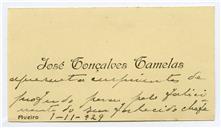 José Gonçalves Gamelas
apresenta cumprimentos de
profundo pesar pelo faleci
mento do seu
chefe
Aveiro 1-11-929